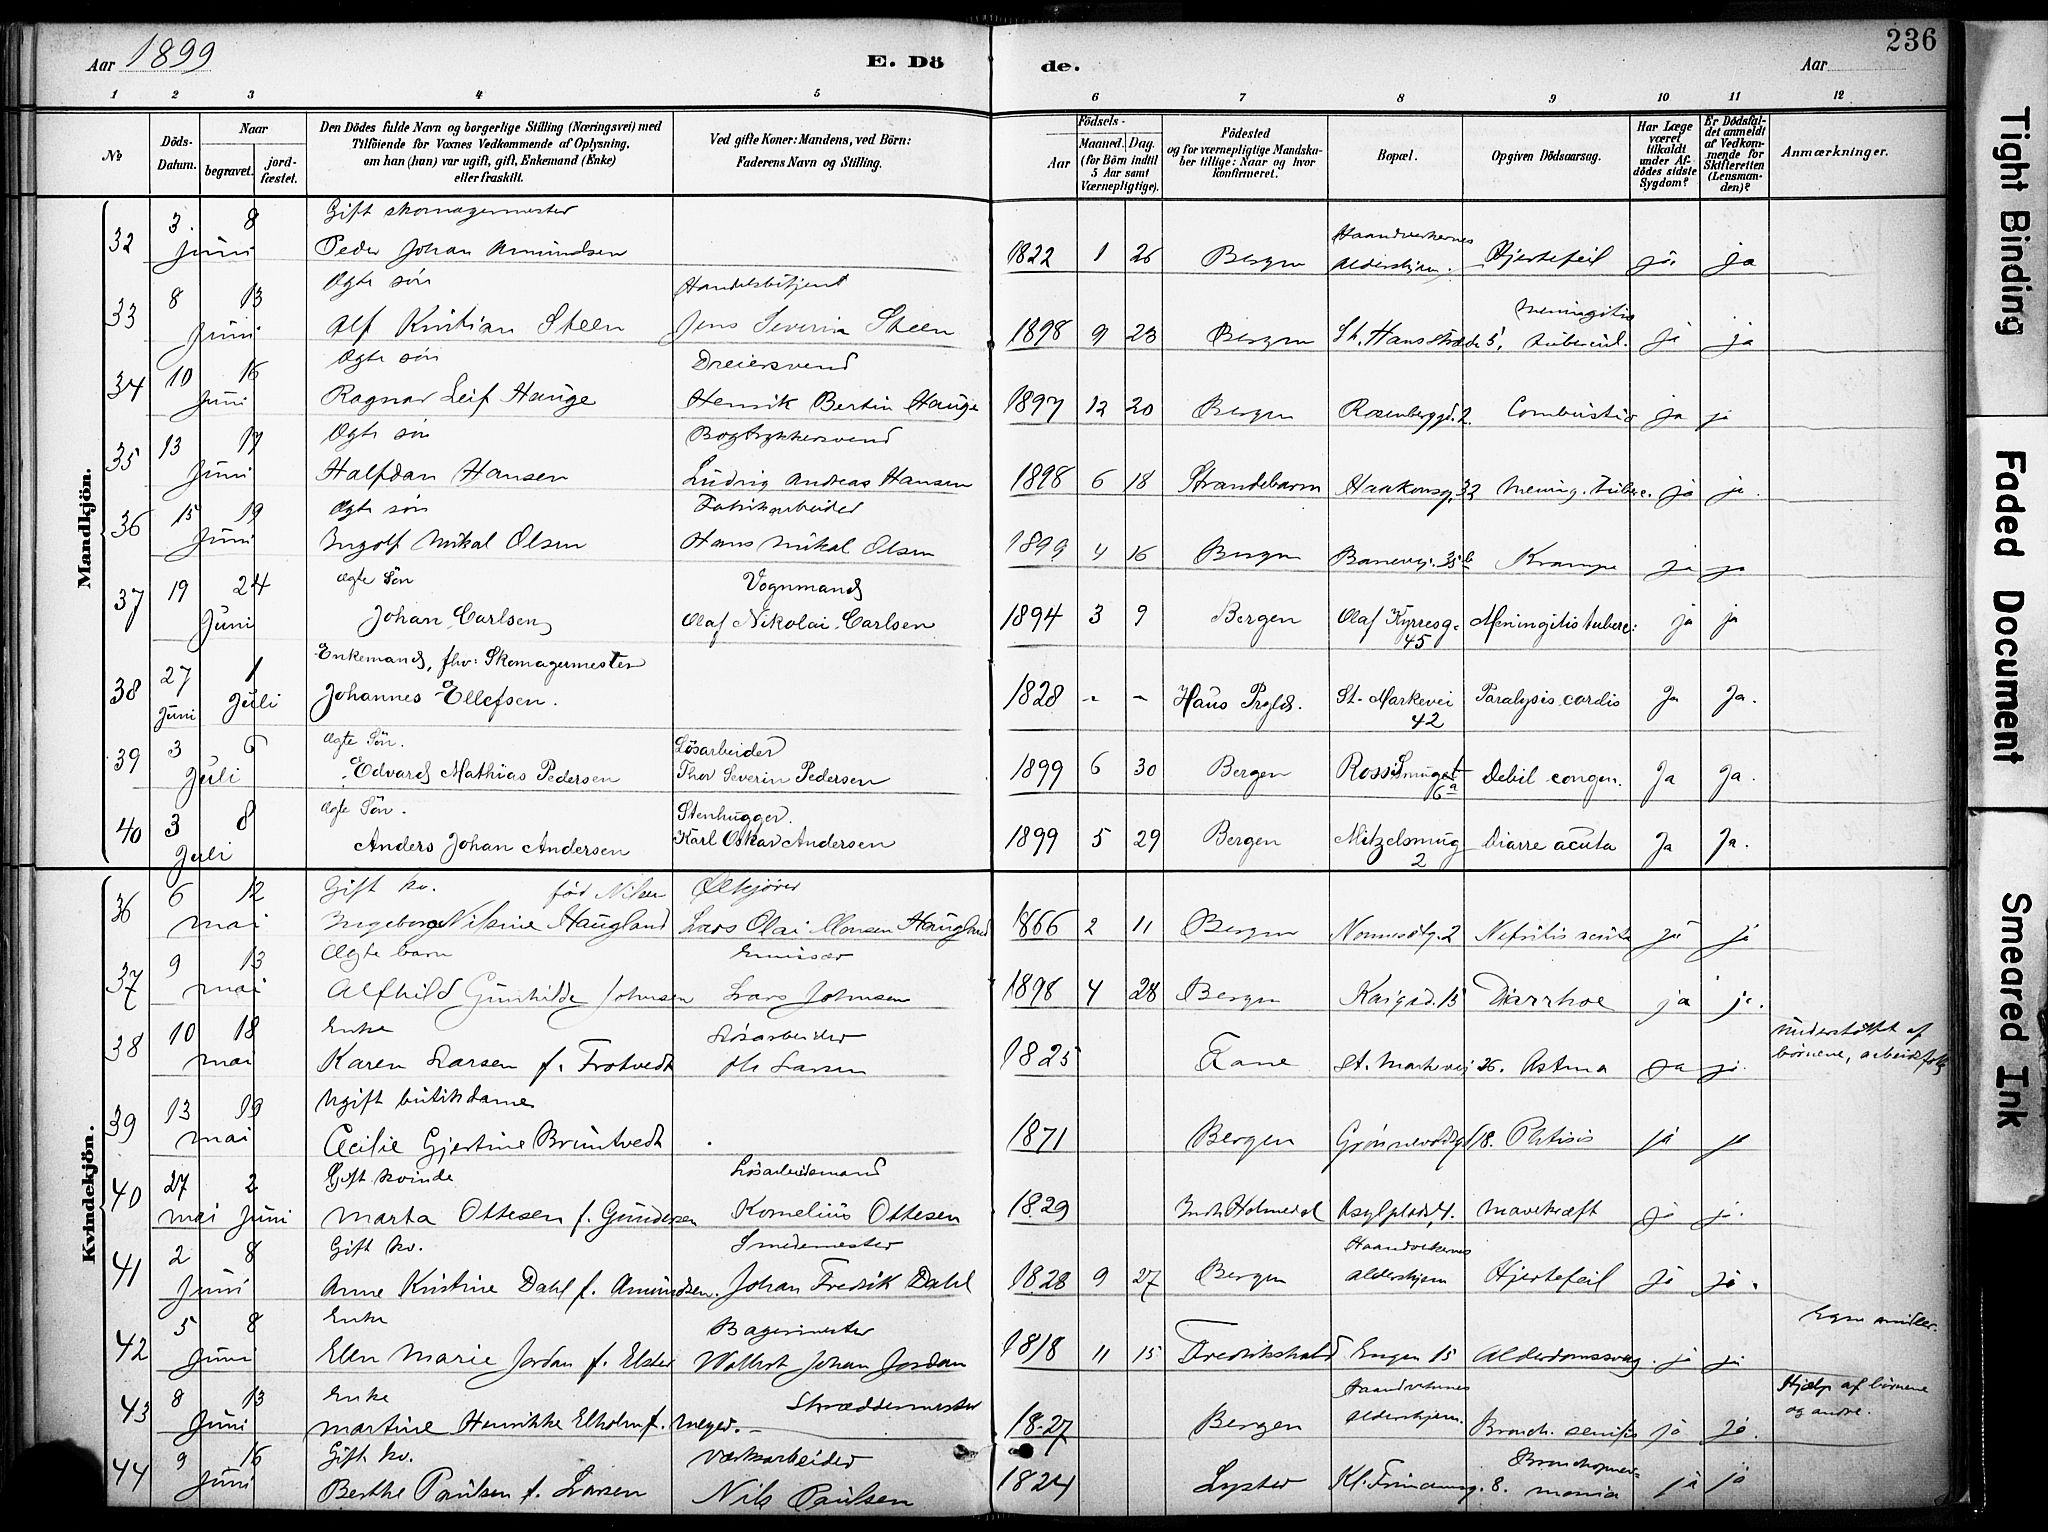 Aar 1899 E. Dö de. Aar 236
1 2 3 4 5 6 7 8 9 10 11 12
№ Döds-Datum. Naar begravet. jordfæstet. Den Dödes fulde Navn og borgerlige Stilling (Næringsvei) med Tilföiende for Voxnes Vedkommende af Oplysning, om han (hun) var ugift, gift, Enkemand (Enke) eller fraskilt. Ved gifte Koner: Mandens, ved Börn: Faderens Navn og Stilling. Födsels- Aar Maaned. Dag. (for Börn indtil 5 Aar samt Værnepligtige). Födested og for værnepligtige Mandskaber tillige: Naar og hvor konfirmeret. Bopæl. Opgiven Dödsaarsag. Har Læge været tilkaldt under Afdödes sidste Sygdom? Er Dödsfaldet anmeldt af Vedkommende for Skifteretten (Lensmanden)? Anmærkninger.
Mandkjön.
3. 8 Gift skomagermester Haandverkernes
32 Juni Peder Johan Amundsen 1822 1 26 Bergen Aldershjem. Hjertefeil ja ja
8 13 Ægte søn Handelsbetjent Meningitis
33 Juni Alf Kristian Steen Jens Severin Steen 1898 9 23 Bergen St. Hansstræde 5, tubercul. ja ja
10 16 Ægte søn Dreiersvend
34 Juni Ragnar Leif Hauge Henrik Bertin Hauge 1897 12 20 Bergen Rosenberggd. 2. Combustio ja ja
13 17 Ægte søn Bogtrykkersvend
35 Juni Halfdan Hansen Ludvig Andreas Hansen 1898 6 18 Strandebarm Haakonsg. 32 Mening. tuberc. ja ja.
15 19 Ægte søn Fabrikarbeider
36 Juni Ingolf Mikal Olsen Hans Mikal Olsen 1899 4 16 Bergen Banevej. 35 b Krampe ja ja
19 24 Ægte Søn Vognmand
37 Juni Johan Carlsen Olaf Nikolai Carlsen 1894 3 9 Bergen Olaf Kyrresg. 45 Meningitis tuberc: ja ja
27 1 Enkemand, fhv: Skomagermester
38 Juni Juli Johannes Ellefsen. 1828 - - Haus Prgld. St. Markevei 42 Paralysis cordis Ja Ja.
3 6 Ægte Søn. Løsarbeider
39 Juli Edvard Mathias Pedersen Thor Severin Pedersen 1899 6 30 Bergen Rossesmuget 6 a Debil congen. Ja Ja.
3 8 Ægte Søn. Stenhugger.
40 Juli Anders Johan Andersen Karl Oskar Andersen 1899 5 29 Bergen Mitzelsmug 2 Diarre acuta Ja Ja.
Kvindekjön.
6 12 Gift kv. fød Nilsen Ølkjører
36 mai Ingeborg Nilsine Haugland Lars Olai Monsen Haugland 1866 2 11 Bergen Nonnestg. 2 Nefritis acuta ja ja
9 13 Ægte barn Emissær
37 mai Alfhild Gunhilda Johnsen Lars Johnsen 1898 4 28 Bergen Kaigad. 15 Diarrhoe ja ja.
10 18 Enke Løsarbeider Understøttet af
38 mai Karen Larsen f. Frotvedt Ole Larsen 1825 Fane St. Markevej 26. Astma ja ja. børnene, arbeidsfolk
13 19 Ugift butikdame
39 mai Cecilie Gjertine Bruntvedt 1871 Bergen Grønnevoldg. 18. Phtisis ja ja
27 2 Gift kvinde Løsarbeidsmand
40 mai Juni Marta Ottesen f. Gundersen Kornelius Ottesen 1829 Indr. Holmedal Asylplads. 4. Mavekræft ja ja.
2 8 Gift kv. Smedemester Haandverkernes
41 Juni Anne Kristine Dahl f. Amundsen. Johan Fredrik Dahl 1828 9 27 Bergen Aldershjem Hjertefeil ja ja.
5 8 Enke Bagermester Egne midler.
42 Juni Elen Marie Jordan f. Elster Wollert Johan Jordan 1818 11 15 Fredrikshald Engen 15 Alderdomssvag. ja ja
8 13 Enke Skræddermester Haandverkernes Hjælp af børnene
43 Juni Martine Henrikke Elholm f. Meyer. 1827 Bergen Aldershjem. Bronch. senilis ja ja. og andre.
9 16 Gift kv. Værksarbeider Bronchopneu-
44 Juni Berthe Paulsen f. Larsen Nils Paulsen 1824 Lyster 8. monia ja ja
Tight Binding
Faded Document
Smeared Ink